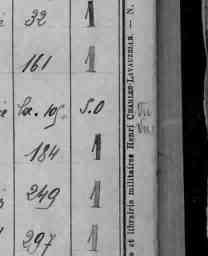 32 1
161 1
S.O
184 1
249 1
297 1
e et librairie militaires Henri CHARLES-LAVAUZELLE. — N.